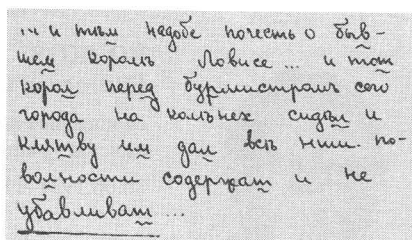 ... и тѣм надобе почесть о быв-
шем королѣ Ловисе ... и тот
корол перед бурмистромъ сого
города на колѣнех сидѣл и
клятву им дал всѣ нши. по-
волности содержат и не
убавливат ...